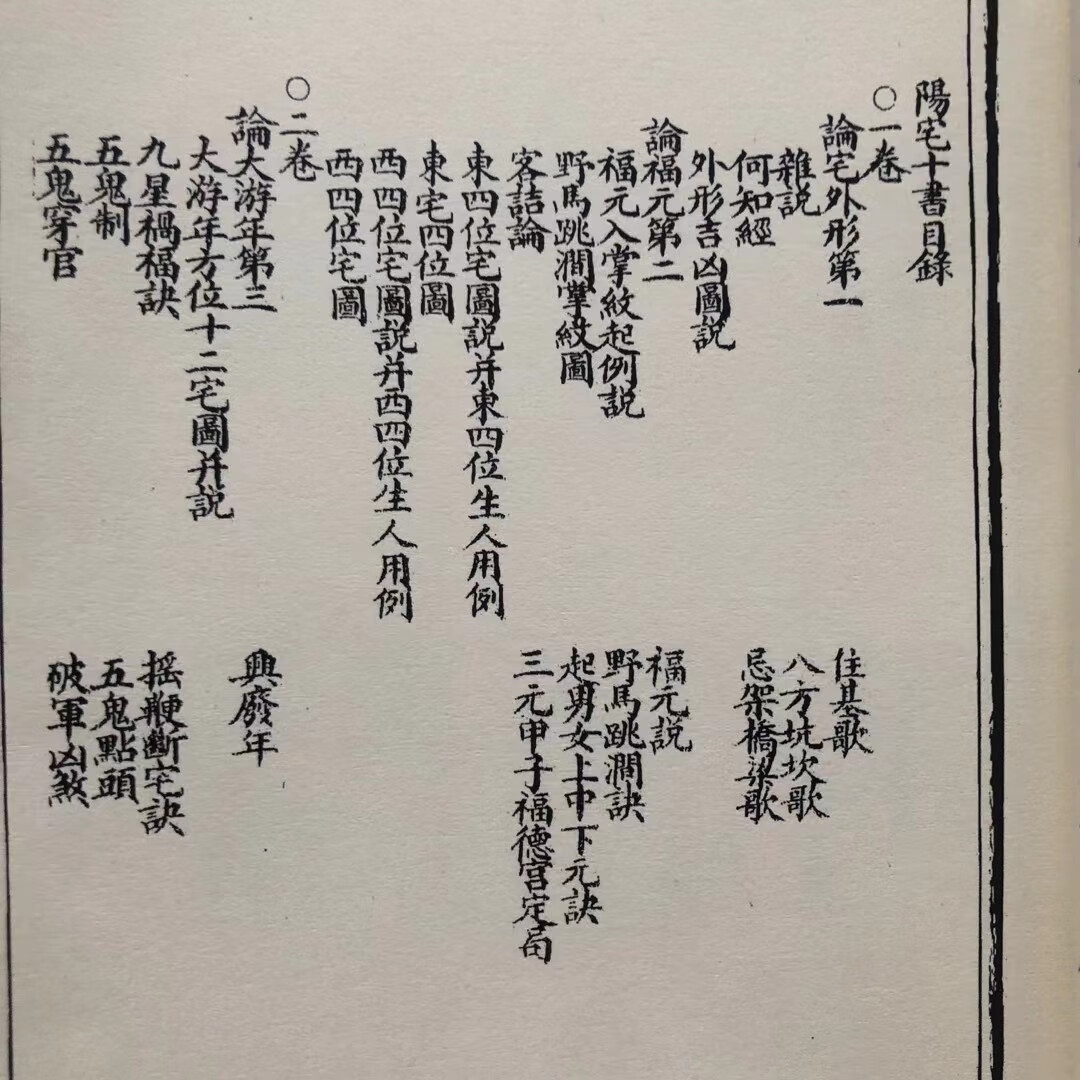 陽宅十書目錄
○一卷
論宅外形第一
住基歌
雜説
八方坑坎歌
何知經
忌架橋梁歌
外形吉凶圖説
論福元第二
福元説
福元入掌紋起例説
野馬跳澗訣
野馬跳澗掌紋圖
起男女上中下元訣
客詰論
三元甲子福德宮定局
東四位宅圖説并東四位生人用例
東宅四位圖
西四位宅圖説并西四位生人用例
西四位宅圖
○二卷
論大游年第三
興廢年
大游年方位十二宅圖并説
九星禍福訣
摇鞭斷宅訣
五鬼制
五鬼點頭
五鬼穿官
破軍凶煞